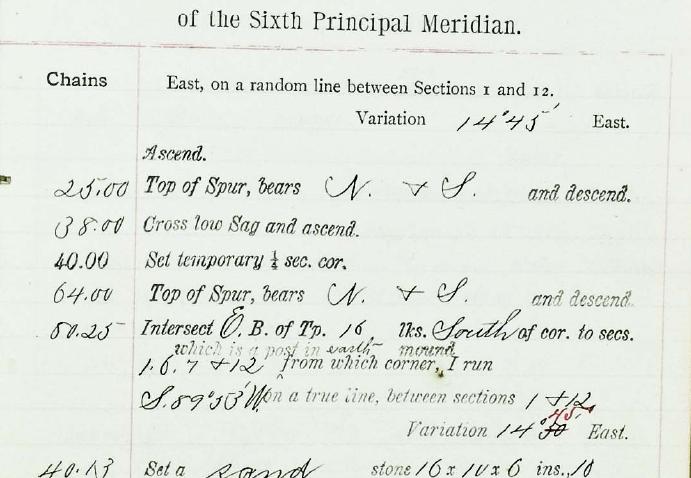 of the Sixth Principal Meridian.
Chains
East, on a random line between Sections 1 and 12.
Variation 14°45' East.
Ascend.
25.00 Top of Spur, bears N. & S. and descend.
38.00 Cross low Sag and ascend.
40.00 Set temporary ¼ sec. cor.
64.00 Top of Spur, bears N. & S. and descend.
80.25 Intersect E. B. of Tp. 16 lks. South of cor. to secs.
which is a post in earth mound
1. 6. 7 & 12 from which corner, I run
S. 89°53' W. on a true line, between sections 1 & 12,
45'
Variation 14°30 East.
40.13 Set a sand stone 16 x 10 x 6 ins., 10